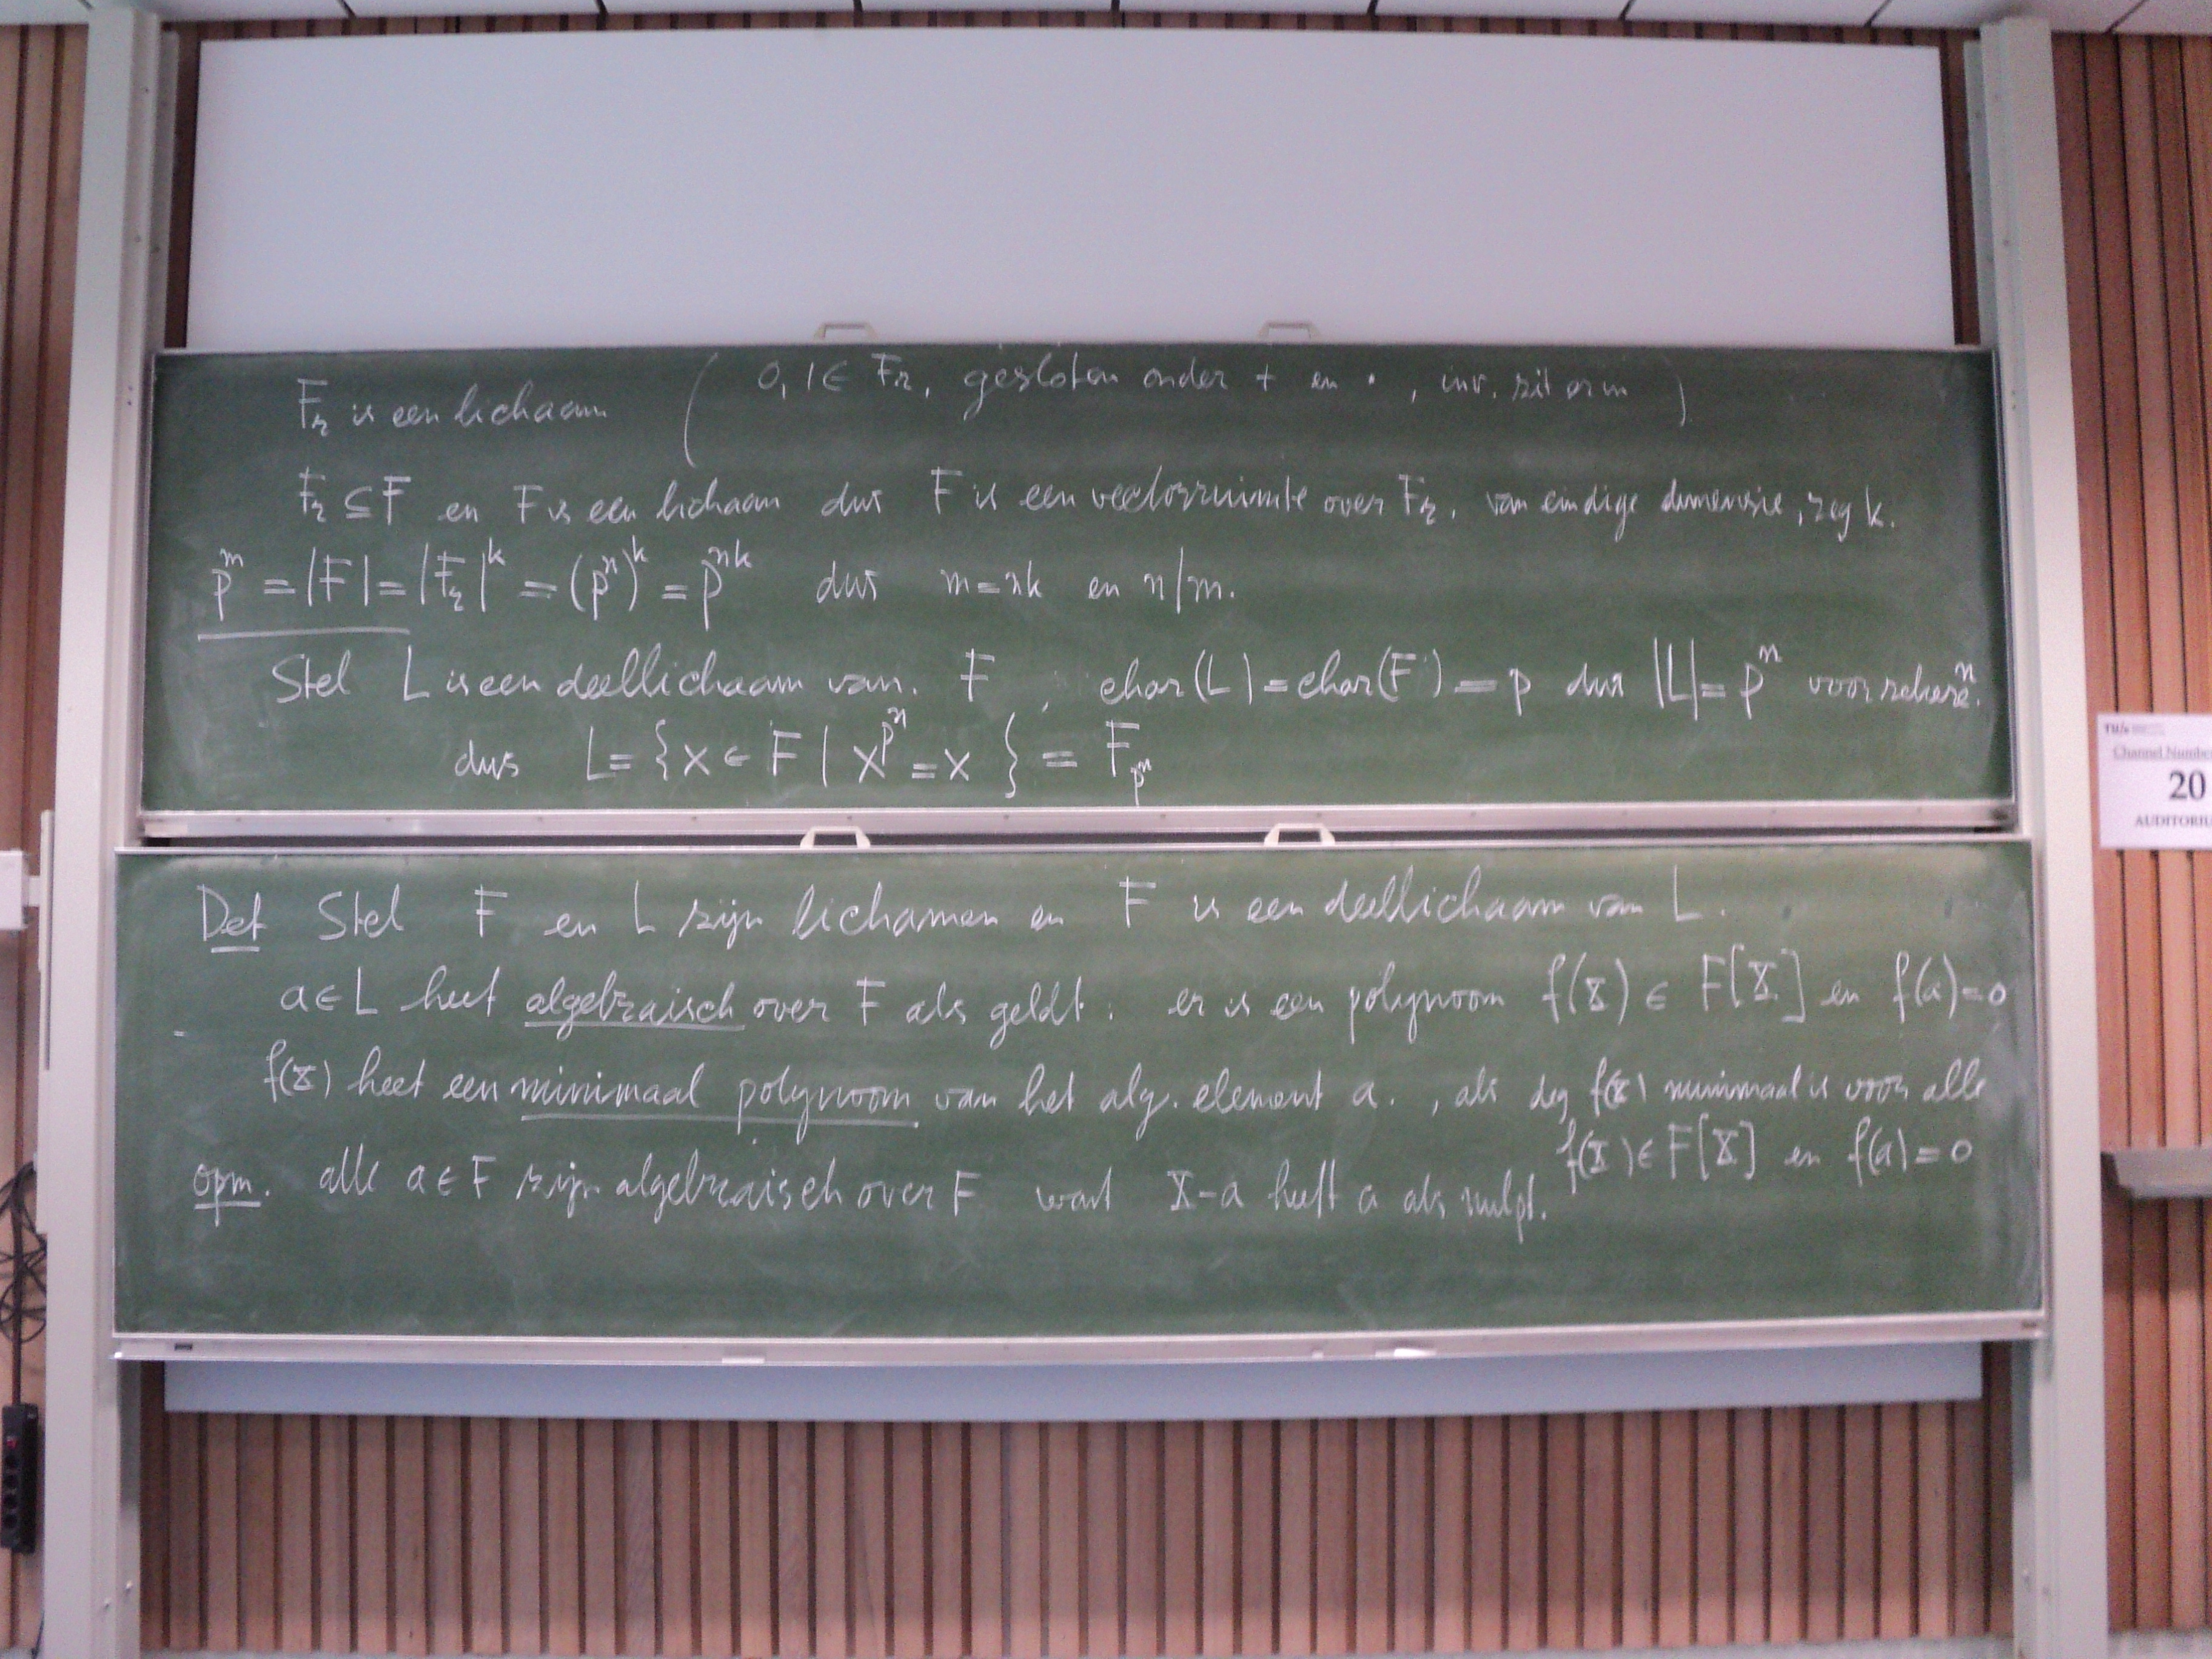 F_r is een lichaam ( 0, 1 ∈ F_r, gesloten onder + en ·, inv. zit erin )
F_r ⊆ F en F is een lichaam dus F is een vectorruimte over F_r, van eindige dimensie, zeg k.
p^m = |F| = |F_r|^k = (p^n)^k = p^{nk} dus m = nk en n|m.
Stel L is een deellichaam van F, char(L) = char(F) = p dus |L| = p^n voor zekere n.
dus L = {x ∈ F | x^{p^n} = x } = F_{p^n}
Def Stel F en L zijn lichamen en F is een deellichaam van L.
a ∈ L heet algebraisch over F als geldt: er is een polynoom f(X) ∈ F[X] en f(a) = 0
f(X) heet een minimaal polynoom van het alg. element a., als deg f(X) minimaal is voor alle
f(X) ∈ F[X] en f(a) = 0
opm. alle a ∈ F zijn algebraisch over F want X-a heeft a als nulpt.
TU/e
Channel Number
20
AUDITORIU